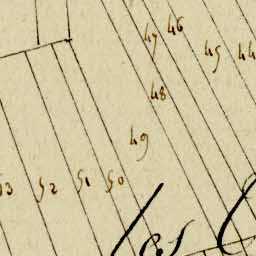 47 46
45 44
48
49
52 51 50
Les